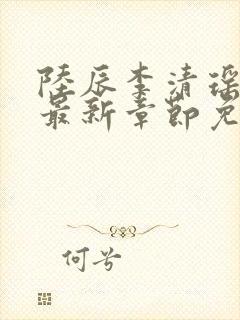 陆辰李清瑶
最新章节免
何兮